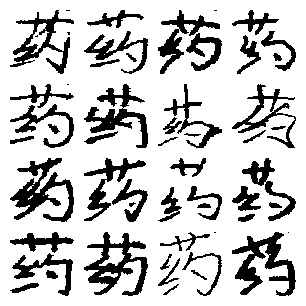 药药药药
药药药药
药药药药
药药药药